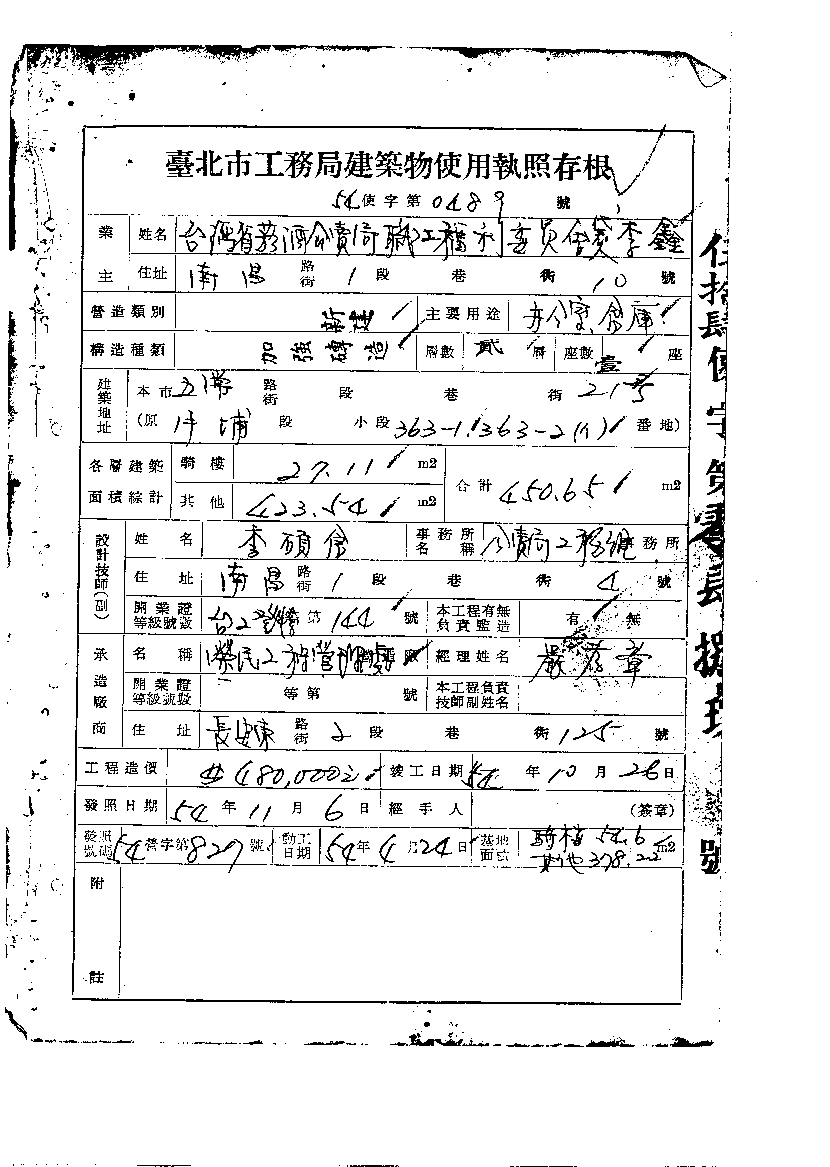 臺北市工務局建築物使用執照存根
54使字第0489號
業主 姓名 台灣省菸酒公賣局職工福利委員會 李鑫
住址 南昌路街1段巷街10號
營造類別 新建 主要用途 辦公室倉庫
構造種類 加強磚造 層數 貳層 座數 壹座
建築地址 本市 路街 段 巷 街 21號
(原 埔段 小段 363-1.363-2(1) 番地)
各層建築面積綜計 騎樓 27.11 m2 合計 450.65 m2
其他 423.54 m2
設計技師(副) 姓名 李碩 事務所名稱 公賣局工 事務所
住址 南昌路街1段巷街4號
開業證等級號數 台工 第144號 本工程有無負責監造 有 無
承造廠商 名稱 榮民工程管理處 造廠 經理姓名 嚴孝章
開業證等級號數 等第 號 本工程負責技師副姓名
住址 長安東路街2段巷街125號
工程造價 $480,000 竣工日期 54年10月26日
發照日期 54年11月6日 經手人 (簽章)
發照號碼 54營字第827號 動工日期 54年4月24日 基地面積 騎樓54.6 其他378.22 m2
附註
伍拾肆使字第零肆捌玖號